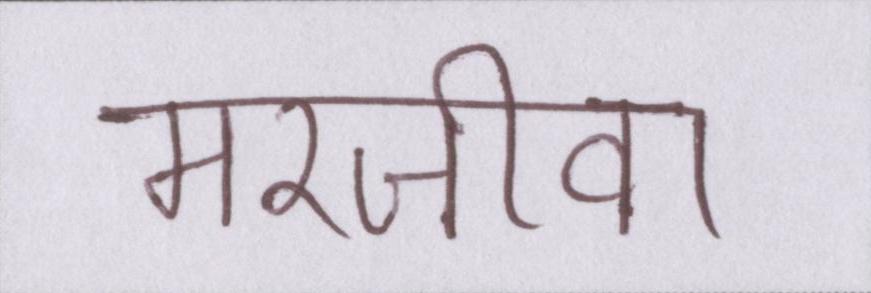 मरजीवा